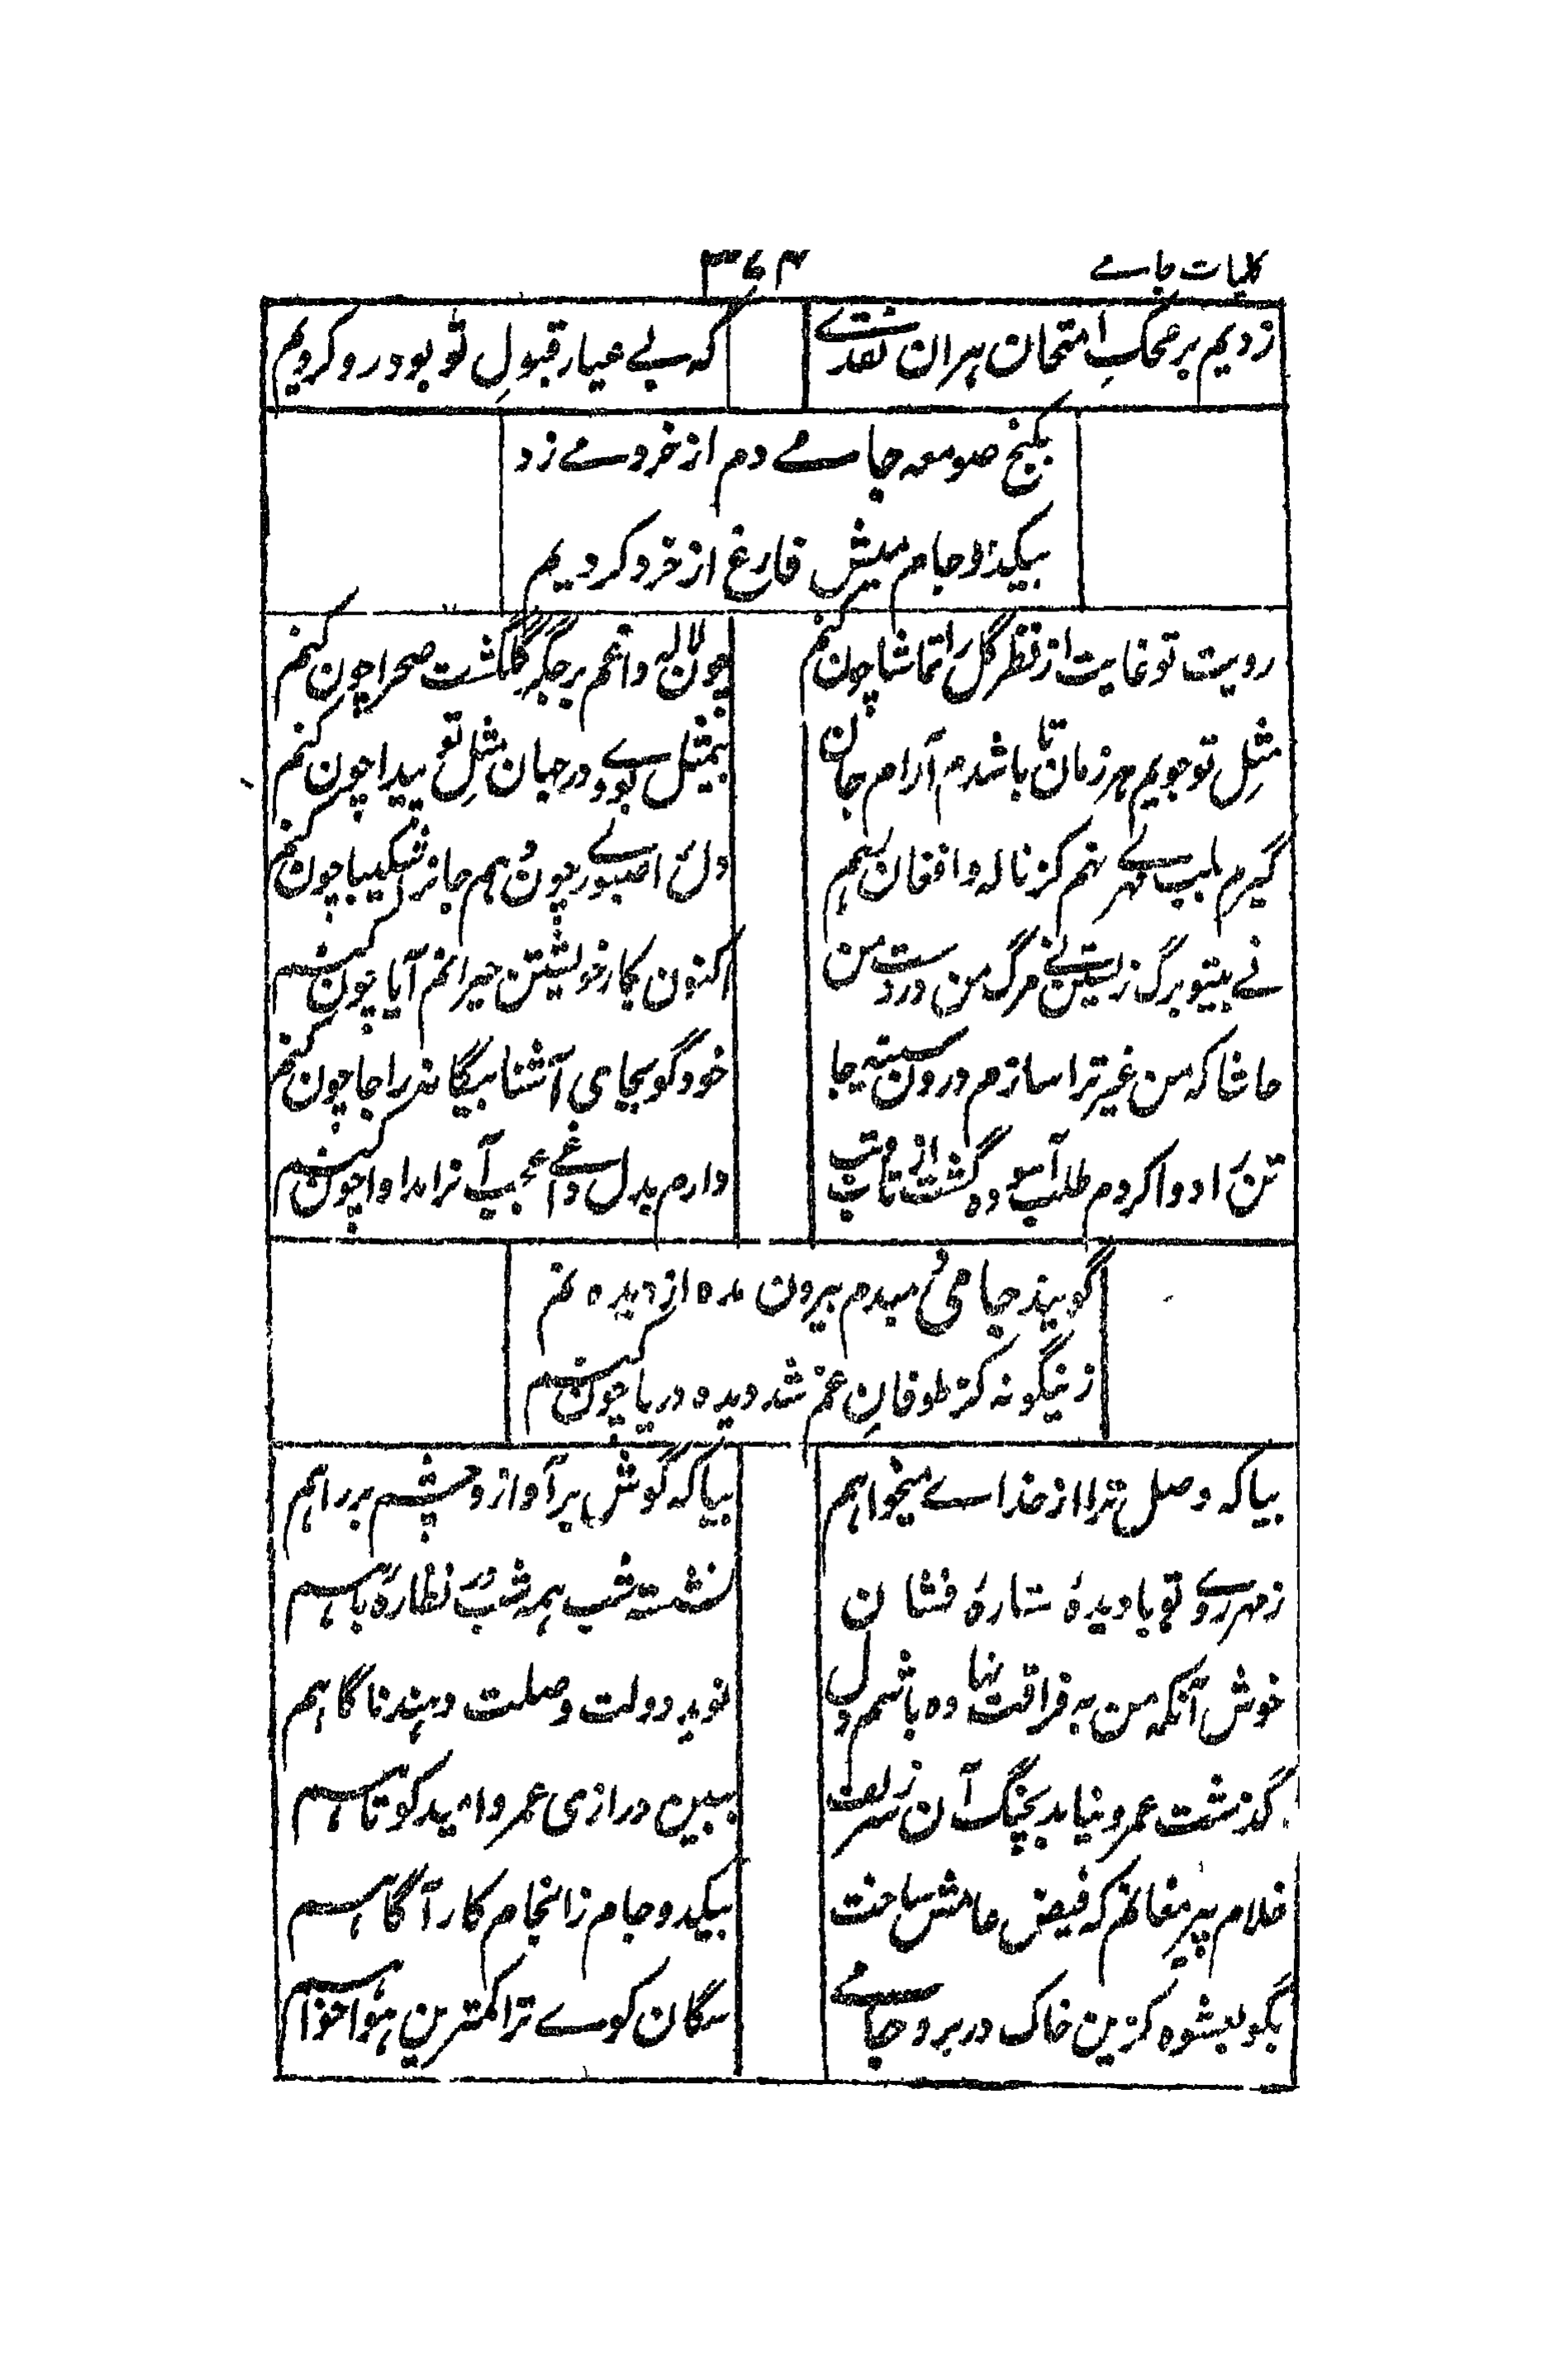 کلیات جامے
۳۶۴
زدیم بر محک امتحان هران نقدے
که بے عیار قبولِ تو بود رو کردیم
بکنج صومعه جامے دم از خرد مے زد
بیکدو جام میش فارغ از خرد کردیم
رویت تو غایت از نظر گل را تماشا چون کنم
چون لاله داغم بر جگر گلگشت صحرا چون کنم
مثلِ تو جویم هر زمان تا باشدم آرام جان
بیمثل بودے در جهان مثلِ تو پیدا چون کنم
گیرم بلب مهرے نهم کز ناله و افغان رهم
دل را صبورے چون دهم جانرا شکیبا چون کنم
نے بیتو برگ زیستن نے مرگ من در دست من
اکنون بکار خویشتن حیرانم آیا چون کنم
حاشا که من غیر ترا سازم درون سینه جا
خود گو بجای آشنا بیگانه را جا چون کنم
تن را دوا کردم طلب آسوده گشت از تاب و تب
دارم بدل داغے عجب آنرا مداوا چون کنم
گویند جامی دمبدم بیرون مده از دیده نم
زینگونه کز طوفانِ غم شد دیده دریا چون کنم
بیا که وصل ترا از خداے میخواهم
بیا که گوش بر آواز و چشم بر راهم
ز مهر روے تو با دیدهٔ ستاره فشان
نشست شب همه شب نظارهٔ ماهم
خوش آنکه من به فراقت نهاده باشم دل
نوید دولت وصلت دهند ناگاهم
گذشت عمر و نیامد بچنگ آن سر زلف
ببین درازی عمر و امید کوتاهم
غلام پیر مغانم که فیض عامش ساخت
بیکدو جام ز انجام کار آگاهم
بگو بعشوه کزین خاک در برو جامے
سگان کوے ترا کمترین هواخواهم